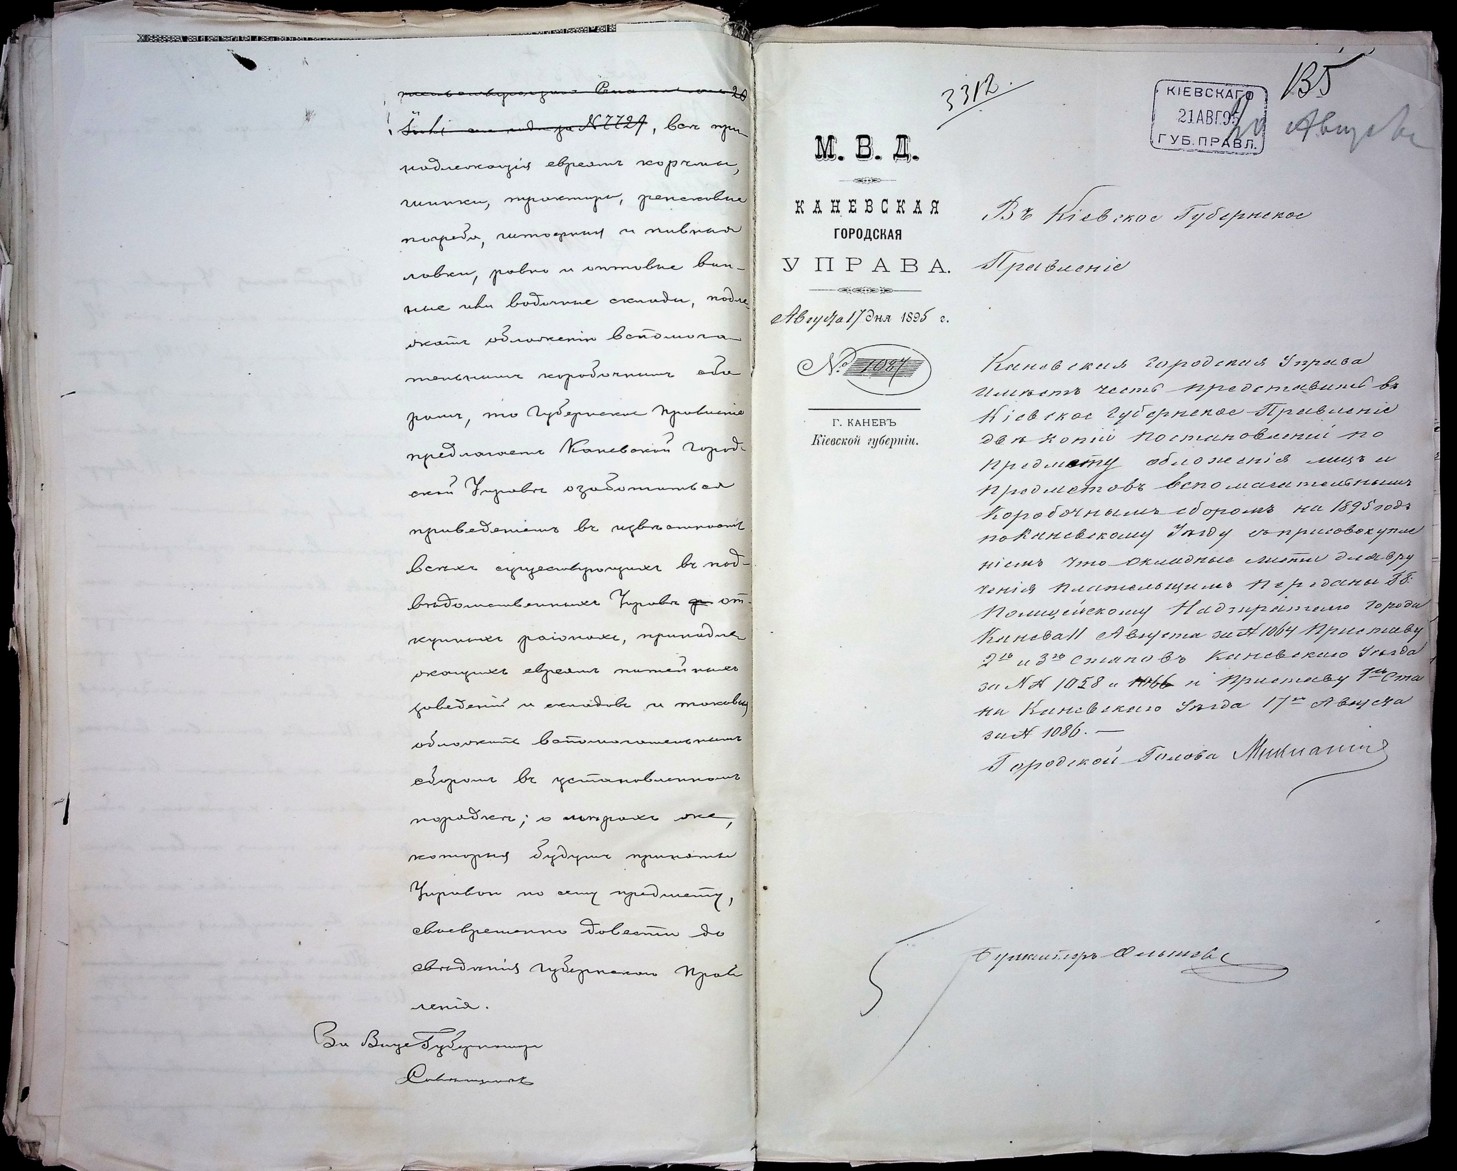 Іюля сего года за № 7727, всѣ при-
надлежащія евреямъ корчмы,
шинки, трактиры, ренсковые
погреба, штофныя и пивныя
лавки, равно и оптовые вин-
ные или водочные склады, подле
жатъ обложенію вспомога
тельнымъ коробочнымъ сбо
ромъ, то Губернское Правленіе
предлагаетъ Каневской Город-
ской Управѣ озаботиться
приведеніемъ въ извѣстность
всѣхъ существующихъ въ под-
вѣдомственныхъ Управѣ от-
купныхъ раіонахъ, принадле
жащихъ евреямъ питейныхъ
заведеній и складовъ и таковыя
обложить вспомогательнымъ
сборомъ въ установленномъ
порядкѣ; о мѣрахъ же,
которыя будутъ приняты
Управою по сему предмету,
своевременно довести до
свѣдѣнія Губернскаго Прав
ленія.
За Вице Губернатора
3312.
135
КІЕВСКАГО
21 АВГ. 95
ГУБ. ПРАВЛ.
Августа
М. В. Д.
КАНЕВСКАЯ
ГОРОДСКАЯ
УПРАВА.
Августа 17 дня 1895 г.
№ 1087
Г. КАНЕВЪ
Кіевской губерніи.
Въ Кіевское Губернское
Правленіе
Каневская Городская Управа
имѣетъ честь представить въ
Кіевское Губернское Правленіе
двѣ копіи постановленій по
предмету обложенія лицъ и
предметовъ вспомагательнымъ
Коробочнымъ сборомъ на 1895 годъ
по Каневскому Уѣзду съ присовокупле
ніемъ что окладные листы для вру
ченія плательщикамъ переданы Гг.
Полицейскому Надзирателю города
Канева 11 Августа за № 1064 Приставу
2го и 3го становъ Каневскаго Уѣзда
за № № 1058 и 1066 и Приставу 1го Ста
на Каневскаго Уѣзда 17го Августа
за № 1086. —
Городской Голова
Бухгалтеръ